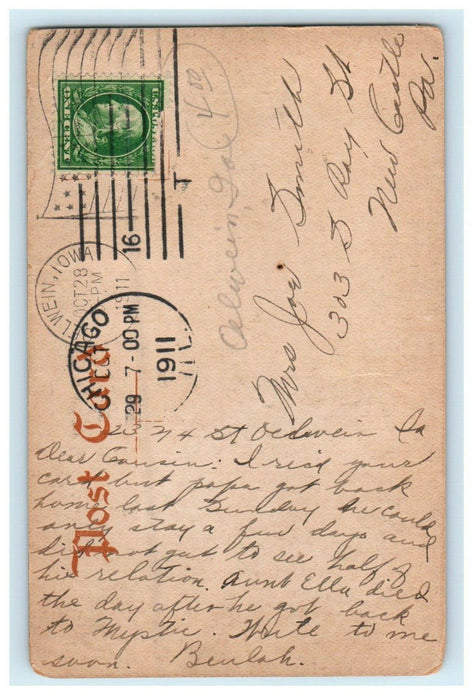 ONE CENT
OELWEIN, IOWA
OCT 28
PM
1911
CHICAGO, ILL.
OCT
29 7-00 PM
1911
16
T
Oelwein, Ioa
4.00
Post Card
Mrs Joe Smith
303 S Ray St
New Castle
Pa.
St Oelwein Ia
Dear Cousin: I rec'd your
card but papa got back
home last Sunday he could
only stay a few days and
did not get to see half of
his relation. Aunt Ella died
the day after he got back
to Mystic. Write to me
soon. Beulah.